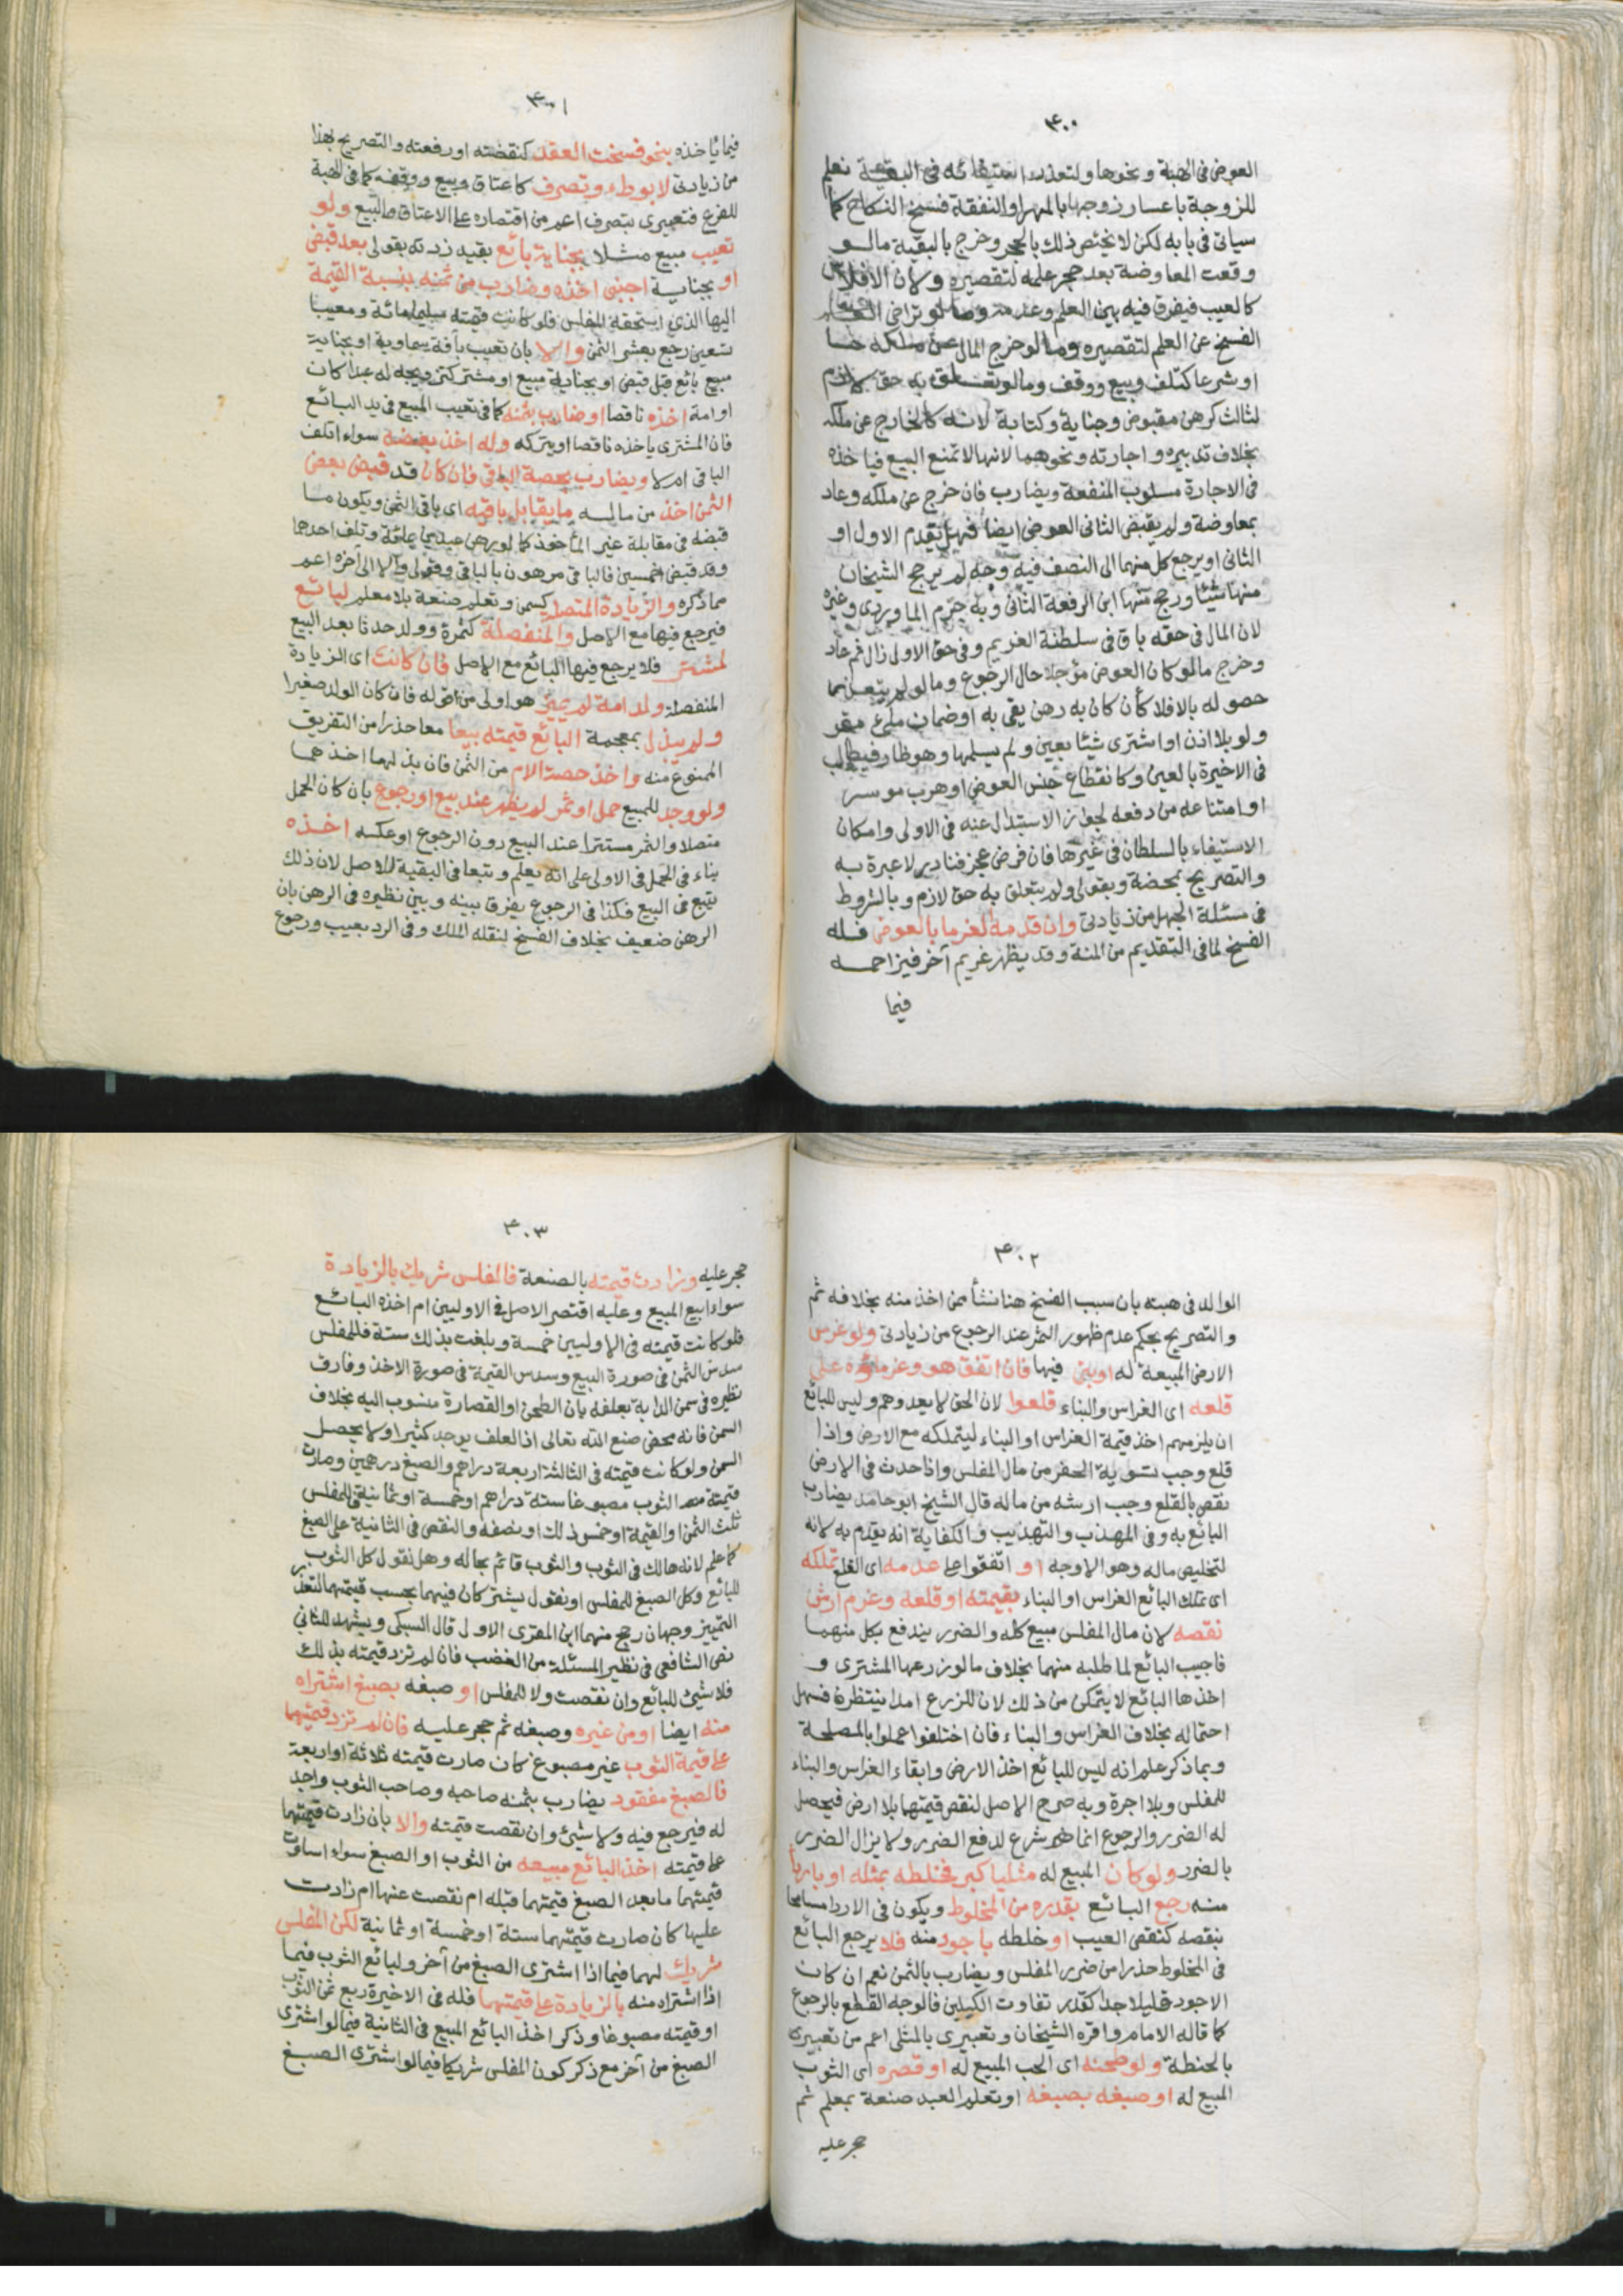 ٤٠٠
العوض فى الهبة ونحوها ولتعذر استيفائه فى البقية نعلم
للزوجة باعسار زوجها بالمهر او النفقة فسخ النكاح كما
سياتى فى بابه لكن لا يختص ذلك بالحجر وخرج بالبقية ما لو
وقعت المعاوضة بعد حجر عليه لتقصيره ولان الافلاس
كالعيب فيفرق فيه بين العلم وعدمه وما لو تراخى
الفسخ عن العلم لتقصيره وما لو خرج المال عن ملكه حسا
او شرعا كتلف وبيع ووقف وما لو تعلق به حق لازم
لثالث كرهن مقبوض وجناية وكتابة لانه كالخارج عن ملكه
بخلاف تدبيره واجارته ونحوهما لانها لا تمنع البيع فياخذه
فى الاجارة مسلوب المنفعة ويضارب فان خرج عن ملكه وعاد
بمعاوضة ولم يقبض الثانى العوض ايضا فهل يقدم الاول او
الثانى او يرجع كل منهما الى النصف فيه وجه لم يرجح الشيخان
منها شيئا ورجح منها ابن الرفعة الثانى وبه جزم الماوردى وغيره
لان المال فى حقه باق فى سلطنة الغريم وفى حق الاولى زال ثم عاد
وخرج ما لو كان العوض مؤجلا حال الرجوع وما لو لم يتعذر
حصوله بالافلا كأن كان به رهن يفى به او ضمان ملئ مقر
ولو بلا اذن او اشترى شيئا بعين ولم يسلمها وهو ظاهر فيطالب
فى الاخيرة بالعين وكانقطاع جنس العوض او هرب موسر
او امتناعه من دفعه لجواز الاستبدال عنه فى الاولى وامكان
الاستيفاء بالسلطان فى غيرها فان فرض عجز فنادر لا عبرة به
والتصريح بمحضة وبقولى ولم يتعلق به حق لازم وبالشروط
فى مسئلة الجهل من زيادتى وان قدمه الغرما بالعوض فله
الفسخ لما فى التقديم من المنة وقد يظهر غريم آخر فيزاحمه
فيما
٤٠١
فيما ياخذه بنحو فسخت العقد كنقضته او رفعته والتصريح بهذا
من زيادتى لا بوطء وتصرف كاعتاق وبيع ووقف كما فى الهبة
للفرع فتعبيرى بتصرف اعم من اقتصاره على الاعتاق والبيع ولو
تعيب مبيع مثلا بجناية بائع بقيد زدته بقولى بعد قبض
او بجناية اجنبى اخذه وضارب من ثمنه بنسبة القيمة
اليها الذى استحقه المفلس فلو كانت قيمته سليما مائة ومعيبا
تسعين رجع بعشر الثمن والا بان تعيب بآفة سماوية او بجناية
مبيع بائع قبل قبض او بجناية مبيع او مشتر كتزويجه له عبدا كان
او امة اخذه ناقصا او ضارب بثمنه كما فى تعيب المبيع فى يد البائع
فان المشترى ياخذه ناقصا او يتركه وله اخذ بعضه سواء اتلف
الباقى ام لا ويضارب بحصة الباقى فان كان قد قبض بعض
الثمن اخذ من ماله ما يقابل باقيه اى باقى الثمن ويكون ما
قبضه فى مقابلة غير المأخوذ كما لو رهن عبدين بمائة وتلف احدهما
وقد قبض خمسين فالباقى مرهون بالباقى وقولى والا الى آخره اعم
مما ذكره والزيادة المتصلة كسمن وتعلم صنعة بلا معلم لبائع
فيرجع فيها مع الاصل والمنفصلة كثمرة وولد حدثا بعد البيع
لمشتر فلا يرجع فيها البائع مع الاصل فان كانت اى الزيادة
المنفصلة ولد امة لم يميز هو اولى من قوله فان كان الولد صغيرا
ولم يبذل بمعجمة البائع قيمته بيعا معا حذرا من التفريق
الممنوع منه واخذ حصة الام من الثمن فان بذلها اخذهما
ولو وجد للمبيع حمل او ثمر لم يظهر عند بيع او رجوع بان كان الحمل
متصلا والثمر مستترا عند البيع دون الرجوع او عكسه اخذه
بناء فى الحمل فى الاولى على انه يعلم وتبعا فى البقية للاصل لان ذلك
تبع فى البيع فكذا فى الرجوع يفرق بينه وبين نظيره فى الرهن بان
الرهن ضعيف بخلاف الفسخ لنقله الملك وفى الرد بعيب ورجوع
٤٠٢
الوالد فى هبته بان سبب الفسخ هنا نشأ ممن اخذ منه بخلافه ثم
والتصريح بحكم عدم ظهور الثمر عند الرجوع من زيادتى ولو غرس
الارض المبيعة له او بنى فيها فان اتفق هو وغرماؤه على
قلعه اى الغراس والبناء قلعوا لان الحق لا يعدوهم وليس للبائع
ان يلزمهم اخذ قيمة الغراس او البناء ليتملكه مع الارض واذا
قلع وجب تسوية الحفر من مال المفلس واذا حدث فى الارض
نقص بالقلع وجب ارشه من ماله قال الشيخ ابو حامد يضارب
البائع به وفى المهذب والتهذيب والكفاية انه يقدم به لانه
لتخليص ماله وهو الاوجه او اتفقوا على عدمه اى القلع تملكه
اى تملك البائع الغراس او البناء بقيمته او قلعه وغرم ارش
نقصه لان مال المفلس مبيع كله والضرر يندفع بكل منهما
فاجيب البائع لما طلبه منهما بخلاف ما لو زرعها المشترى و
اخذها البائع لا يتمكن من ذلك لان للزرع امدا ينتظر فسهل
احتماله بخلاف الغراس والبناء فان اختلفوا عملوا بالمصلحة
وبما ذكر علم انه ليس للبائع اخذ الارض وابقاء الغراس والبناء
للمفلس وبلا اجرة وبه صرح الاصل لنقص قيمتهما بلا ارض فيحصل
له الضرر والرجوع انما شرع لدفع الضرر ولا يزال الضرر
بالضرر ولو كان المبيع له مثليا كبر فخلطه بمثله او باردأ
منه رجع البائع بقدره من المخلوط ويكون فى الاردا مسامحا
بنقصه كنقص العيب او خلطه باجود منه فلا يرجع البائع
فى المخلوط حذرا من ضرر المفلس ويضارب بالثمن نعم ان كان
الاجود قليلا جدا كقدر تفاوت الكيلين فالوجه القطع بالرجوع
كما قاله الامام واقره الشيخان وتعبيرى بالمثلى اعم من تعبيرى
بالحنطة ولو طحنه اى الحب المبيع له او قصره اى الثوب
المبيع له او صبغه بصبغه او تعلم العبد صنعة بمعلم ثم
حجر عليه
٤٠٣
حجر عليه وزادت قيمته بالصنعة فالمفلس شريك بالزيادة
سواء ابيع المبيع وعليه اقتصر الاصل فى الاوليين ام اخذه البائع
فلو كانت قيمته فى الاوليين خمسة وبلغت بذلك ستة فللمفلس
سدس الثمن فى صورة البيع وسدس القيمة فى صورة الاخذ وفارق
نظيره فى سمن الدابة بعلفه بان الطحن او القصارة منسوب اليه بخلاف
السمن فانه محض صنع الله تعالى اذ العلف يوجد كثيرا ولا يحصل
السمن ولو كانت قيمته فى الثالثة اربعة دراهم والصبغ درهمين وصارت
قيمته الثوب مصبوغا ستة دراهم او خمسة او ثمانية فللمفلس
ثلث الثمن او القيمة او خمس ذلك او نصفه والنقص فى الثانية على الصبغ
كما علم لانه هالك فى الثوب والثوب قائم بحاله وهل نقول كل الثوب
للبائع وكل الصبغ للمفلس او نقول يشتركان فيهما بحسب قيمتهما لتعذر
التمييز وجهان رجح منهما ابن المقرى الاول قال السبكى ويشهد للثانى
نص الشافعى فى نظير المسئلة من الغضب فان لم تزد قيمته بذلك
فلا شئ للبائع وان نقصت ولا للمفلس او صبغه بصبغ اشتراه
منه ايضا او من غيره وصبغه ثم حجر عليه فان لم تزد قيمتهما
على قيمة الثوب غير مصبوغ كان صارت قيمته ثلاثة او اربعة
فالصبغ مفقود يضارب بثمنه صاحبه وصاحب الثوب واجد
له فيرجع فيه ولا شئ وان نقصت قيمته والا بان زادت قيمتهما
على قيمته اخذ البائع مبيعه من الثوب او الصبغ سواء اساوت
قيمتهما ما بعد الصبغ قيمتهما قبله ام نقصت عنها ام زادت
عليها كان صارت قيمتهما ستة او خمسة او ثمانية لكن المفلس
شريك لهما فيما اذا اشترى الصبغ من آخر ولبائع الثوب فيما
اذا اشتراه منه بالزيادة على قيمتهما فله فى الاخيرة ربع ثمن الثوب
او قيمته مصبوغا وذكر اخذ البائع المبيع فى الثانية فيما لو اشترى
الصبغ من آخر مع ذكر كون المفلس شريكا فيما لو اشترى الصبغ